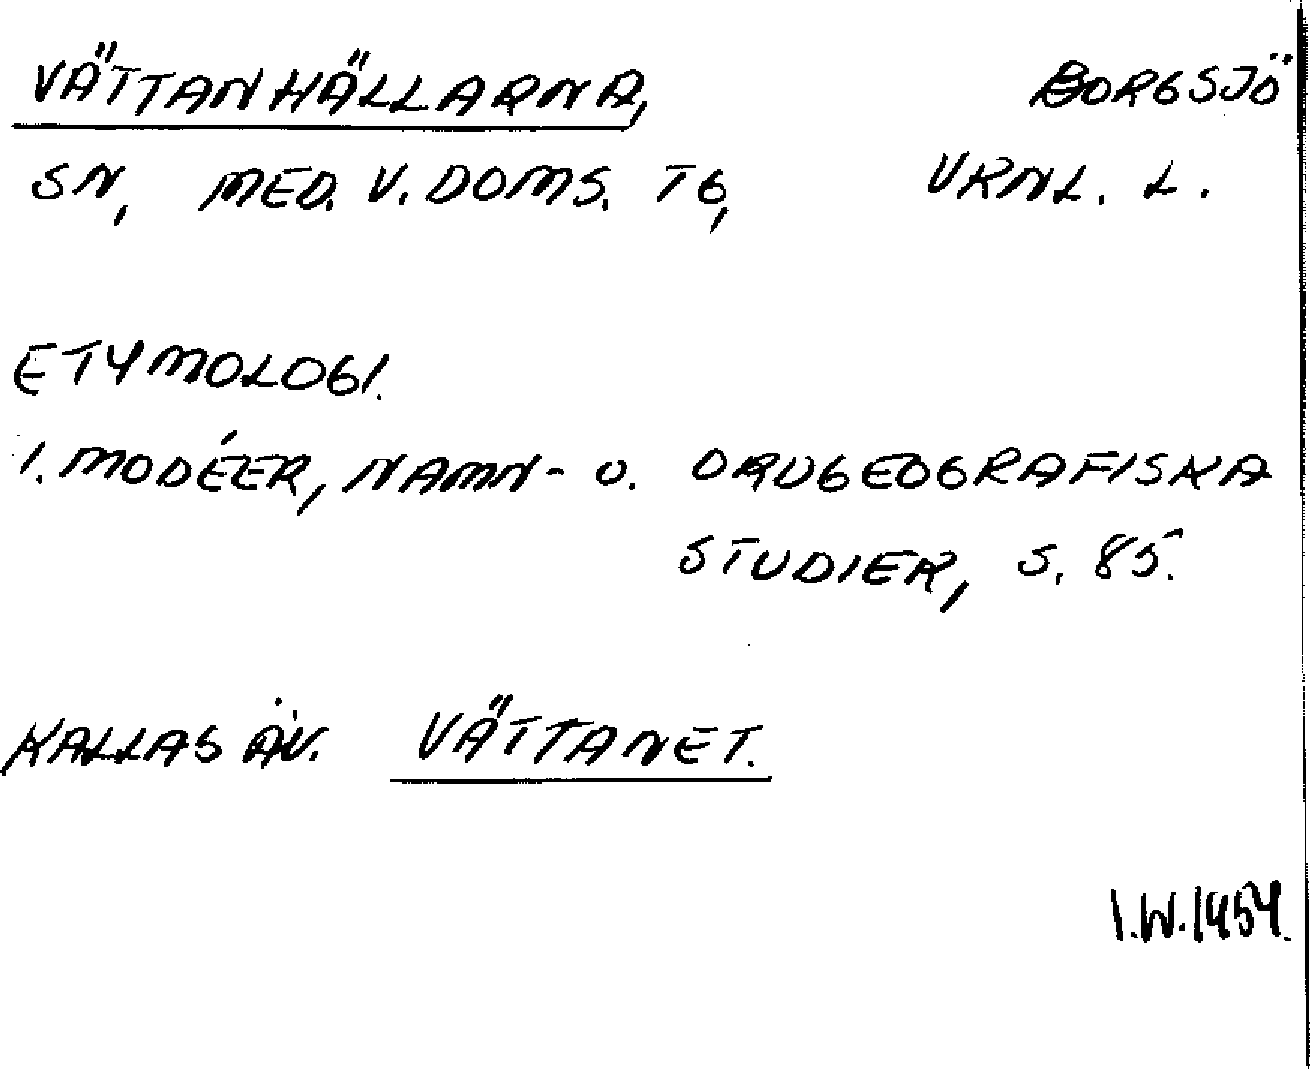 VÄTTANHÄLLARNA, BORGSJÖ
SN, MED. V. DOMS. TG, VRNL. L.
ETYMOLOGI.
I. MODÉER, NAMN- O. ORDGEOGRAFISKA
STUDIER, S. 85.
KALLAS ÄV. VÄTTANET.
I.W.1954.